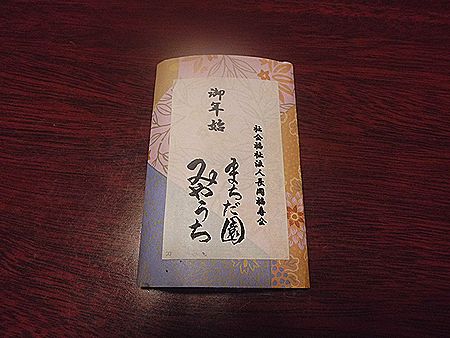 御年始
社会福祉法人長岡福寿会
まちだ園
みやうち